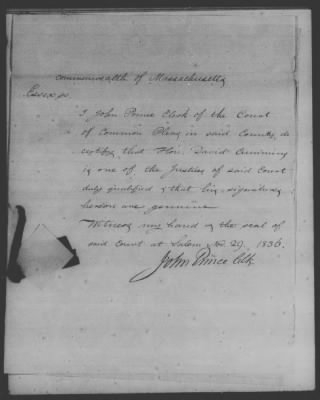 Commonwealth of Massachusetts
Essex ss.
I John Prince Clerk of the Court
of Common Pleas in said County do
certify that Hon. David Cummins
is one of the Justices of said Court
duly qualified & that his signatures
hereon are genuine
Witness my hand & the seal of
said Court at Salem Nov. 29. 1836.
John Prince Clk